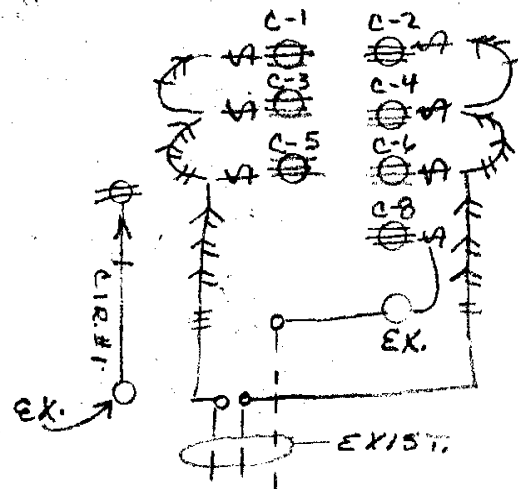 C-1 C-2
C-3 C-4
C-5 C-6
C-8
CIR.#1
EX.
EX.
EXIST.